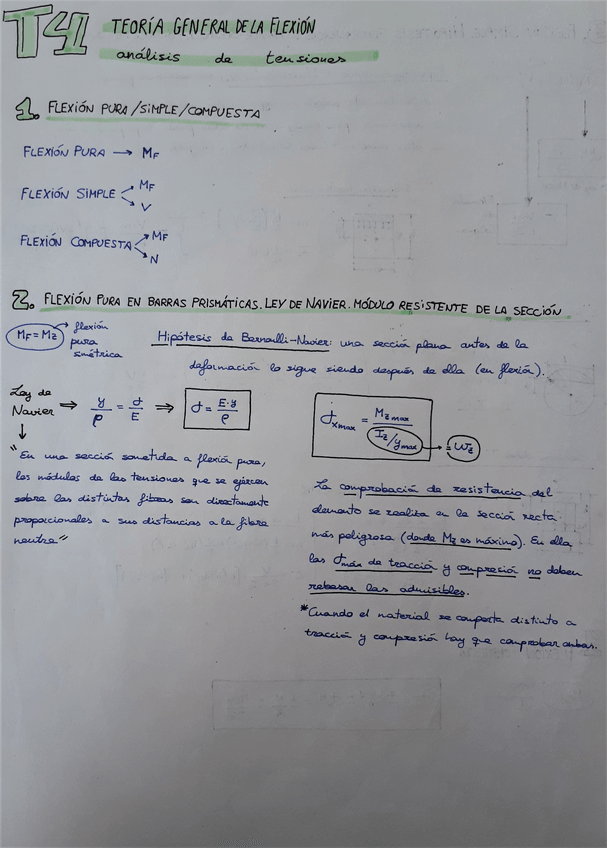 T4 TEORÍA GENERAL DE LA FLEXIÓN
análisis de tensiones
1. FLEXIÓN PURA/SIMPLE/COMPUESTA
FLEXIÓN PURA → MF
FLEXIÓN SIMPLE
MF
V
FLEXIÓN COMPUESTA
MF
N
2. FLEXIÓN PURA EN BARRAS PRISMÁTICAS. LEY DE NAVIER. MÓDULO RESISTENTE DE LA SECCIÓN
MF = Mz
flexión
pura
simétrica
Hipótesis de Bernoulli-Navier: una sección plana antes de la
deformación lo sigue siendo después de ella (en flexión).
Ley de
Navier ⇒ y/ρ = σ/E ⇒ σ = E·y/ρ
σxmax = Mz max / (Iz/ymax) = Wz
"En una sección sometida a flexión pura,
los módulos de las tensiones que se ejercen
sobre las distintas fibras son directamente
proporcionales a sus distancias a la fibra
neutra"
La comprobación de resistencia del
elemento se realiza en la sección recta
más peligrosa (donde Mz es máximo). En ella,
las σmáx de tracción y compresión no deben
rebasar las admisibles.
*Cuando el material se comporta distinto a
tracción y compresión hay que comprobar ambas.